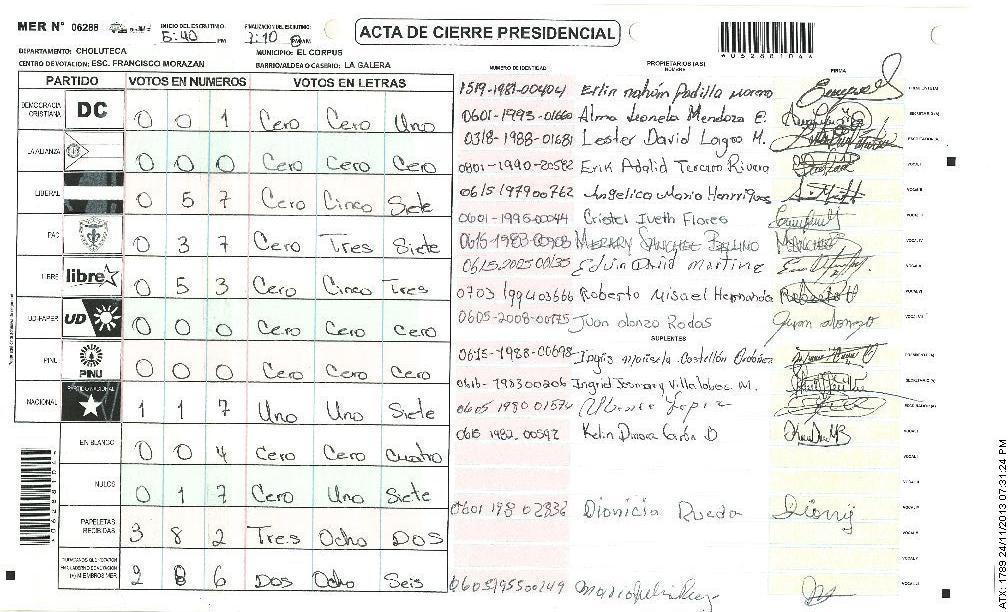 MER N° 06288
INICIO DEL ESCRUTINIO: 5:40 PM
FINALIZACION DEL ESCRUTINIO: 7:10 PM
ACTA DE CIERRE PRESIDENCIAL
DEPARTAMENTO: CHOLUTECA
MUNICIPIO: EL CORPUS
CENTRO DE VOTACION: ESC. FRANCISCO MORAZAN
BARRIO/ALDEA O CASERIO: LA GALERA
PARTIDO VOTOS EN NUMEROS VOTOS EN LETRAS
DEMOCRACIA CRISTIANA DC 0 0 1 Cero Cero Uno
LA ALIANZA 0 0 0 Cero Cero Cero
LIBERAL 0 5 7 Cero Cinco Siete
PAC 0 3 7 Cero Tres Siete
LIBRE libre 0 5 3 Cero Cinco Tres
UD-FAPER UD 0 0 0 Cero Cero Cero
PINU PINU 0 0 0 Cero Cero Cero
NACIONAL PARTIDO NACIONAL 1 1 7 Uno Uno Siete
EN BLANCO 0 0 4 Cero Cero Cuatro
NULOS 0 1 7 Cero Uno Siete
PAPELETAS RECIBIDAS 3 8 2 Tres Ocho DOS
2 8 6 DOS Ocho Seis
NUMERO DE IDENTIDAD PROPIETARIOS (AS) NOMBRE FIRMA
1519-1981-00404 Erlin nahún Padilla Moreno
0601-1993-01660 Alma Leonela Mendoza E.
0318-1988-01681 Lester David Lagos M.
0801-1990-20582 Erik Adalid Tercero Rivera
0615197900762 Angelica Maria Henriques
0601-1995-00044 Cristel Iveth Flores
0615-1983-00908
Edvin David Martine
0703 199403666 Roberto Misael Hernandez
0605-2008-00175 Juan alonzo Rodas Juan alonzo
SUPLENTES
0615-1988-00698
0615-198300206 Ingrid Josmary Villalobos M.
0605 1980 01574
0615 1982 00592
0601 198 02836 Dionicia Rueda Diony
0605195500149
ATX: 1789 24/11/2013 07:31:24 PM